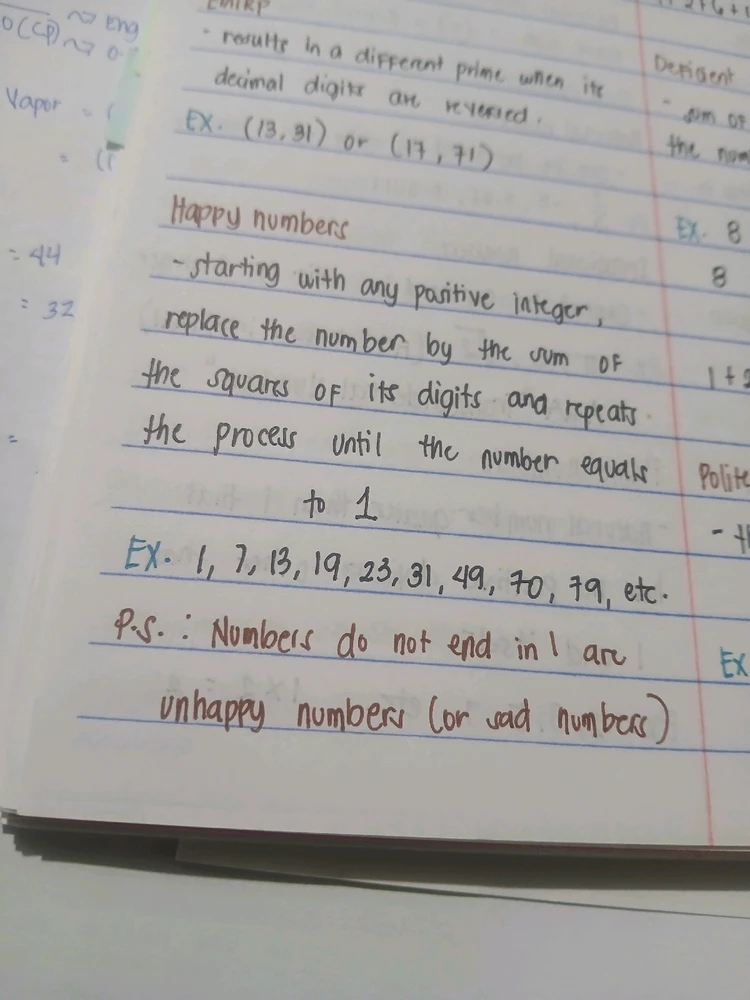 EMIRP
- results in a different prime when its
decimal digits are reversed.
EX. (13,31) or (17,71)
Happy numbers
- starting with any positive integer,
replace the number by the sum of
the squares of its digits and repeats
the process until the number equals
to 1
EX. 1, 7, 13, 19, 23, 31, 49, 70, 79, etc.
P.S. : Numbers do not end in 1 are
unhappy numbers (or sad numbers)
- sum of
the
EX. 8
8
1 + 2
Polite
-
EX
Eng
Vapor =
=
= 44
= 32
=